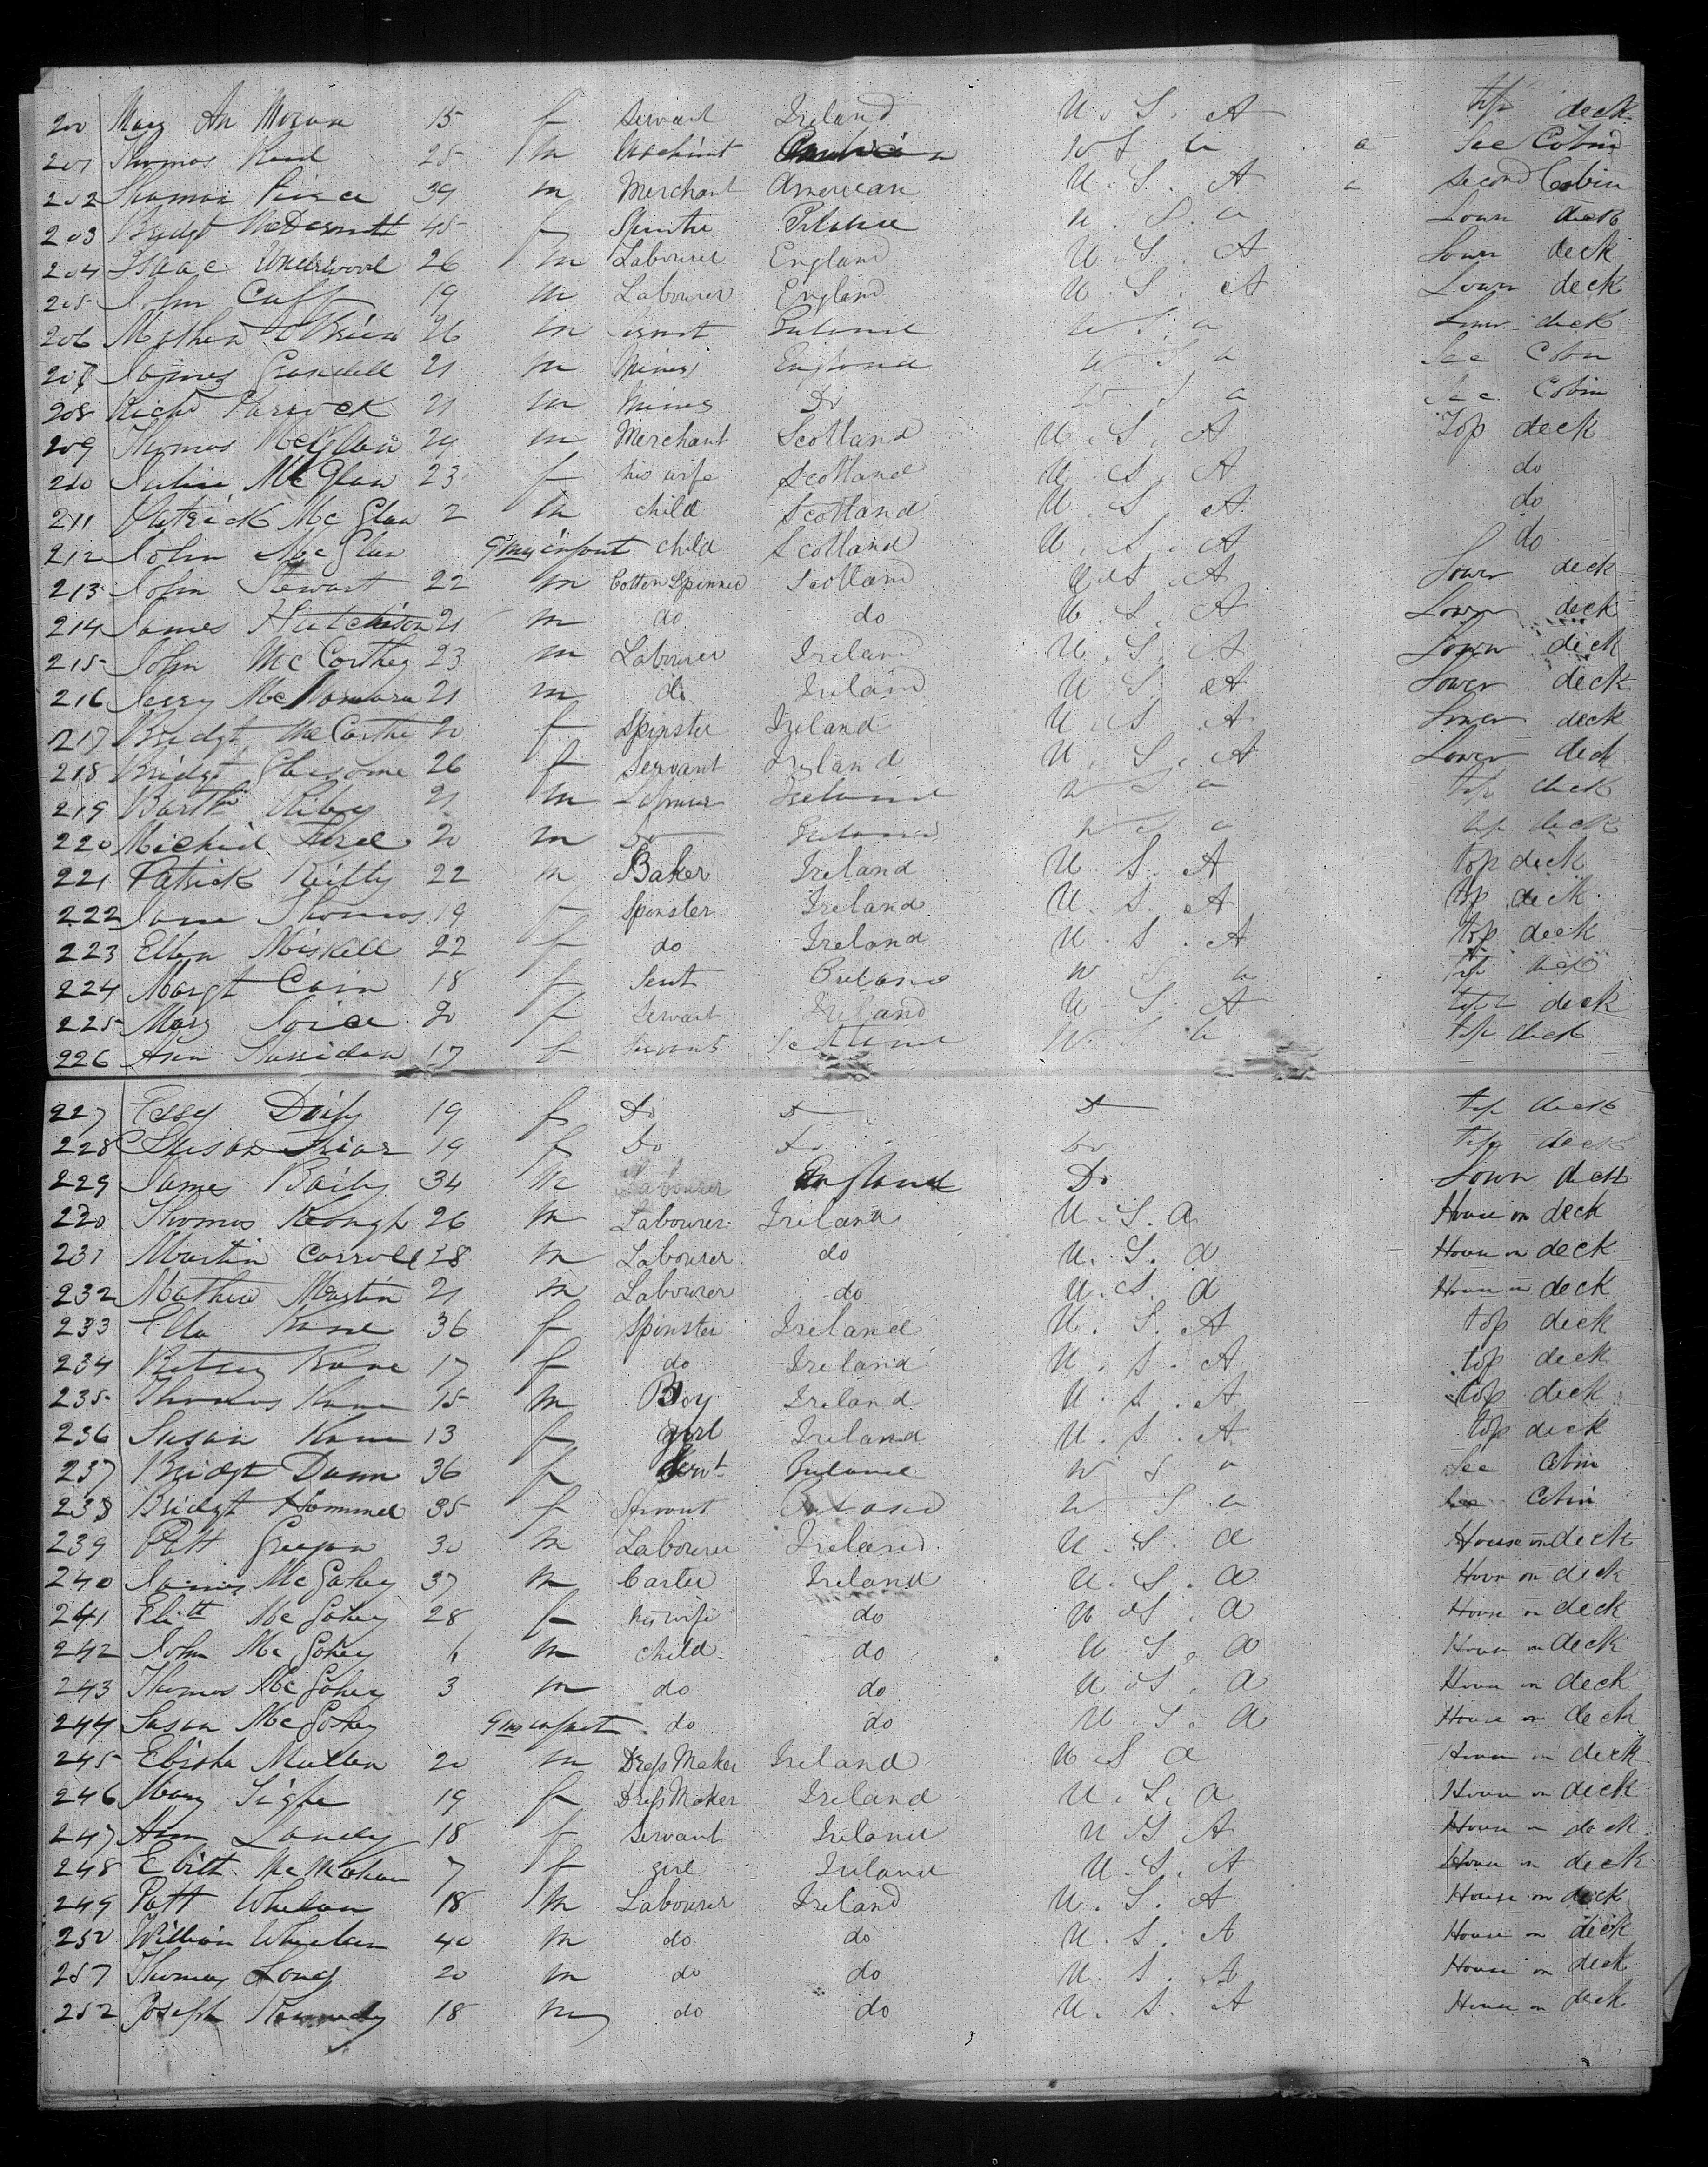 200 Mary An Moran 15 f Servant Ireland U. S. A top deck
201 Thomas 25 m U S a a Sec Cabin
202 Thomas Pierce 39 m Merchant American U. S. A Second Cabin
203 Bridgt McDermott 45 f Ireland U. S. a Lower deck
204 Isaac Underwood 26 m Labourer England U S. A Lower deck
205 John Cuff 19 m Labourer England U. S. A Lower deck
206 Mathew O'Brien 26 m Ireland U S a Lower deck
207 James Grandell 21 m Miner England U S a Sec Cabin
208 Richd 21 m Miner Do U S a Sec Cabin
209 Thomas McGlan 29 m Merchant Scotland U. S. A Top deck
210 Julia McGlan 23 f his wife Scotland U. S. A do
211 Patrick McGlan 2 m child Scotland U. S. A do
212 John McGlan 9 mos infant child Scotland U. S. A do
213 John Stewart 22 m Cotton Spinner Scotland U. S. A Lower deck
214 James Hutchison 21 m do do U S. A Lower deck
215 John McCarthey 23 m Labourer Ireland U. S. A Lower deck
216 Jerry McNamara 21 m do Ireland U S. A Lower deck
217 Bridgt McCarthe 20 f Spinster Ireland U S. A Lower deck
218 Bridgt 26 f Servant Ireland U. S. A Lower deck
219 Barthw 21 m Labourer Ireland U S a top deck
220 Michial 20 m Do Ireland U S a top deck
221 Patrick Reilly 22 m Baker Ireland U S. A top deck
222 Jane Thomas 19 f Spinster Ireland U. S. A top deck
223 Ellen Miskell 22 f do Ireland U. S. A top deck
224 Margt Cain 18 f Sert Ireland U S a top deck
225 Mary Joice 20 f Servant Ireland U S. A top deck
226 Ann 17 f Servant Scotland U. S. a top deck
227 Essy Daily 19 f Do Do Do top deck
228 Susan Friar 19 f Do Do Do top deck
229 James Baily 34 m Labourer England Do Lower deck
230 Thomas Keough 26 m Labourer Ireland U. S. a House on deck
231 Martin Carroll 38 m Labourer do U. S. a House on deck
232 Mathew Martin 21 m Labourer do U. S. a House on deck
233 Ella Kane 36 f Spinster Ireland U. S. A top deck
234 Betsey Kane 17 f do Ireland U. S. A top deck
235 Thomas Kane 15 m Boy Ireland U. S. A top deck
236 Susan Kane 13 f girl Ireland U. S. A top deck
237 Bridgt Dunn 36 f Servt Ireland U S a Sec Cabin
238 Bridgt Hammel 35 f Servant Ireland U S a Sec Cabin
239 Patt 30 m Labourer Ireland U. S. a House on deck
240 James McGahey 37 m Carter Ireland U. S. a House on deck
241 Elizth McGahey 28 f his wife do U S. a House on deck
242 John McGahey 6 m child do U S. a House on deck
243 Thomas McGahey 3 m do do U S. a House on deck
244 Susan McGahey 9 mos infant do do U. S. a House on deck
245 Elisha Mullen 20 m Dress Maker Ireland U S a House on deck
246 Mary Tighe 19 f Dress Maker Ireland U. S. a House on deck
247 Ann Landy 18 f Servant Ireland U S A House on deck
248 McMahan 7 f girl Ireland U. S. A House on deck
249 Patt Whelan 18 m Labourer Ireland U. S. A House on deck
250 William Whelan 40 m do do U. S. A House on deck
251 Thomas Long 20 m do do U. S. A House on deck
252 Joseph Kennedy 18 m do do U. S. A House on deck